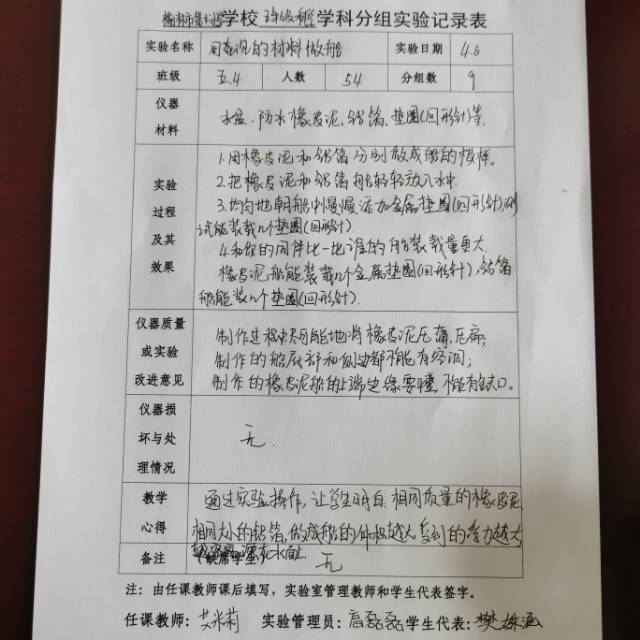 榆林市第十小学校 五年级 科学 学科分组实验记录表
实验名称 用常见的材料做船 实验日期 4.8
班级 五.4 人数 54 分组数 9
仪器材料 水盆、防水橡皮泥、铝箔、垫圈(回形针)等
实验过程及其效果
1.用橡皮泥和铝箔分别做成船的模样。
2.把橡皮泥和铝箔船轻轻放入水中.
3.均匀地朝船中慢慢添加金属垫圈(回形针),测
试能装载几个垫圈(回形针)
4.和你的同伴比一比谁的船装载量更大
橡皮泥船能装载几个金属垫圈(回形针),铝箔
船能装几个垫圈(回形针).
仪器质量或实验改进意见
制作过程中尽可能地将橡皮泥压薄、压扁;
制作的船底部和侧边都不能有空洞;
制作的橡皮泥船的上端边缘要, 不能有缺口。
仪器损坏与处理情况 无.
教学心得
通过实验操作,让学生明白,相同质量的橡皮泥,
相同大小的铝箔,做成船的体积越大,受到的浮力越大
备注(缺席学生) 无
注：由任课教师课后填写，实验室管理教师和学生代表签字。
任课教师: 艾米莉 实验管理员: 磊磊 学生代表: 樊姝涵